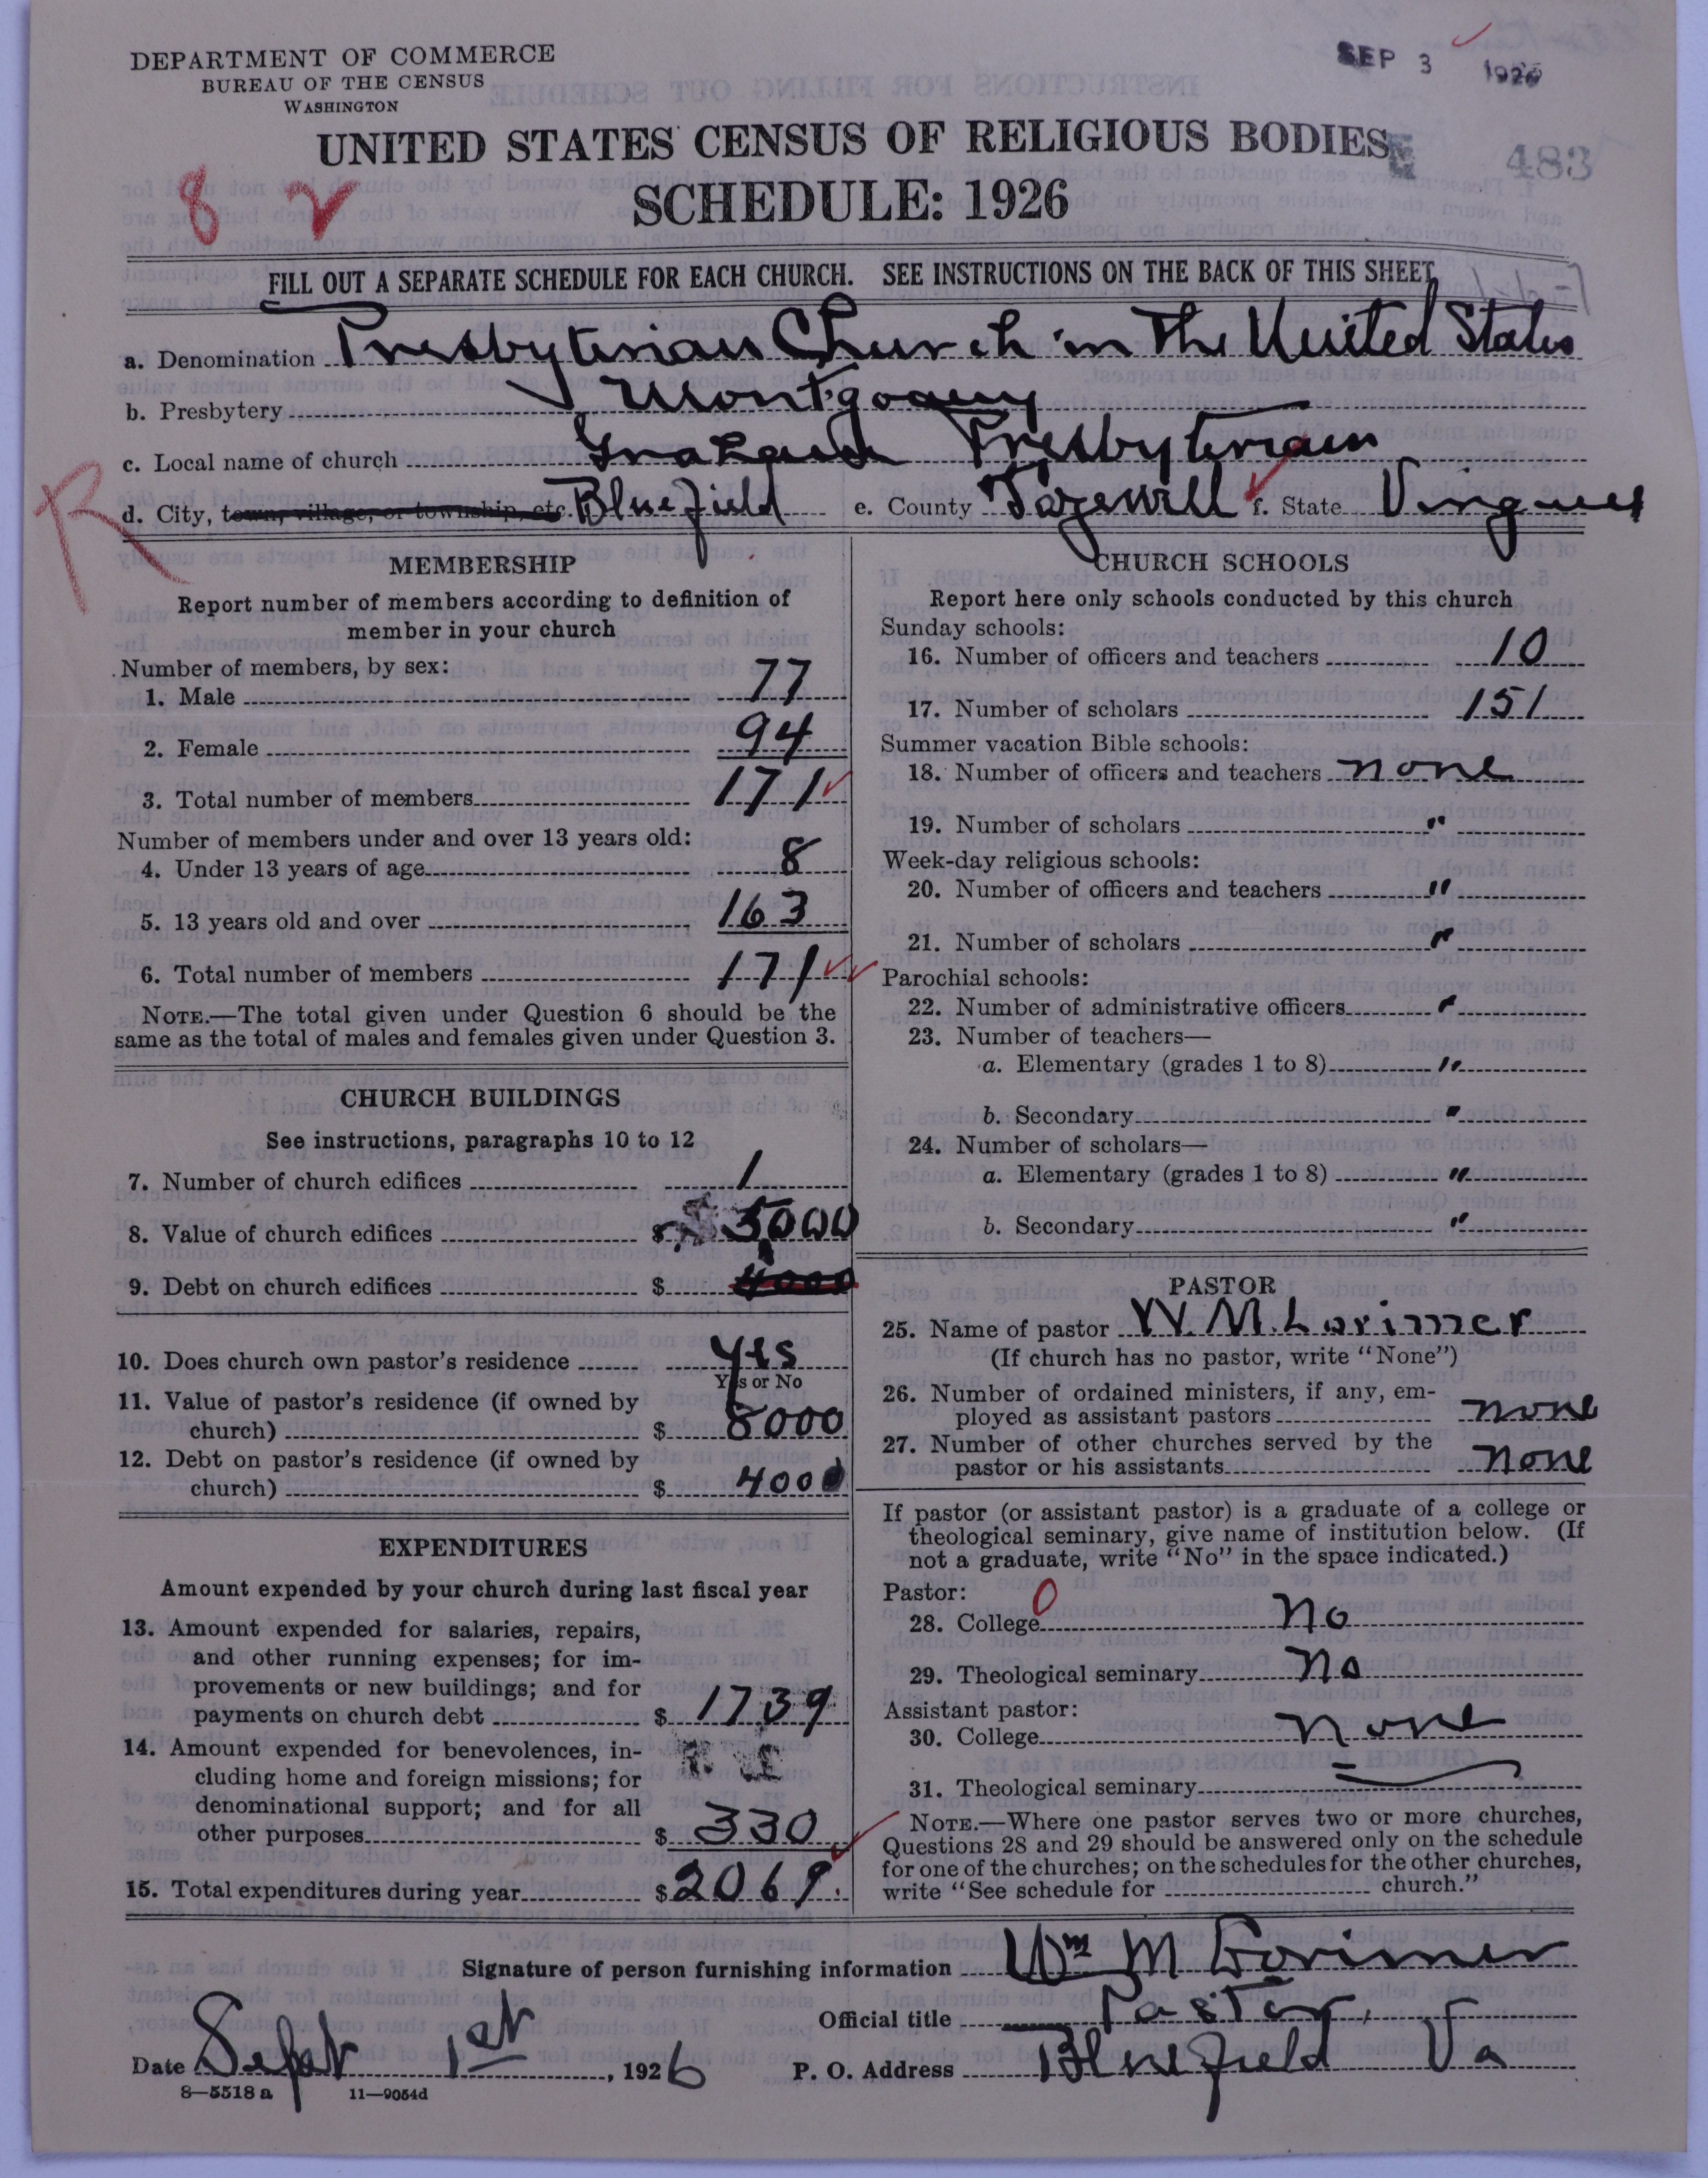 DEPARTMENT OF COMMERCE
BUREAU OF THE CENSUS
WASHINGTON
SEP 3 1926
UNITED STATES CENSUS OF RELIGIOUS BODIES
483
8 2
SCHEDULE: 1926
FILL OUT A SEPARATE SCHEDULE FOR EACH CHURCH. SEE INSTRUCTIONS ON THE BACK OF THIS SHEET
a. Denomination Presbyterian Church in The United States
b. Presbytery Montgomery
c. Local name of church Graham Presbyterian
R
d. City, town, village, or township, etc. Bluefield e. County Tazewell f. State Virginia
MEMBERSHIP
Report number of members according to definition of
member in your church
Number of members, by sex:
1. Male 77
2. Female 94
3. Total number of members 171
Number of members under and over 13 years old:
4. Under 13 years of age 8
5. 13 years old and over 163
6. Total number of members 171
NOTE.—The total given under Question 6 should be the
same as the total of males and females given under Question 3.
CHURCH BUILDINGS
See instructions, paragraphs 10 to 12
7. Number of church edifices 1
8. Value of church edifices $ 5000
9. Debt on church edifices $ 4000
10. Does church own pastor's residence yes
Yes or No
11. Value of pastor's residence (if owned by
church) $ 8000
12. Debt on pastor's residence (if owned by
church) $ 4000
EXPENDITURES
Amount expended by your church during last fiscal year
13. Amount expended for salaries, repairs,
and other running expenses; for im-
provements or new buildings; and for
payments on church debt $ 1739
14. Amount expended for benevolences, in-
cluding home and foreign missions; for
denominational support; and for all
other purposes $ 330
15. Total expenditures during year $ 2069.
CHURCH SCHOOLS
Report here only schools conducted by this church
Sunday schools:
16. Number of officers and teachers 10
17. Number of scholars 151
Summer vacation Bible schools:
18. Number of officers and teachers none
19. Number of scholars "
Week-day religious schools:
20. Number of officers and teachers "
21. Number of scholars "
Parochial schools:
22. Number of administrative officers "
23. Number of teachers—
a. Elementary (grades 1 to 8) "
b. Secondary "
24. Number of scholars—
a. Elementary (grades 1 to 8) "
b. Secondary "
PASTOR
25. Name of pastor W. M. Lorimer
(If church has no pastor, write "None")
26. Number of ordained ministers, if any, em-
ployed as assistant pastors none
27. Number of other churches served by the
pastor or his assistants none
If pastor (or assistant pastor) is a graduate of a college or
theological seminary, give name of institution below. (If
not a graduate, write "No" in the space indicated.)
Pastor: 0
28. College no
29. Theological seminary no
Assistant pastor:
30. College none
31. Theological seminary
NOTE.—Where one pastor serves two or more churches,
Questions 28 and 29 should be answered only on the schedule
for one of the churches; on the schedules for the other churches,
write "See schedule for church."
Signature of person furnishing information Wm M Lorimer
Official title Pastor
Date Sept 1st, 1926 P. O. Address Bluefield Va
8—5518 a 11—9054d